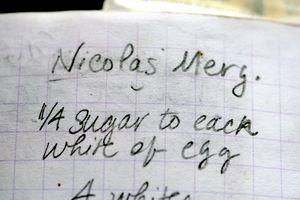 Nicolas Merg.
1/4 sugar to each
white of egg
4 whites